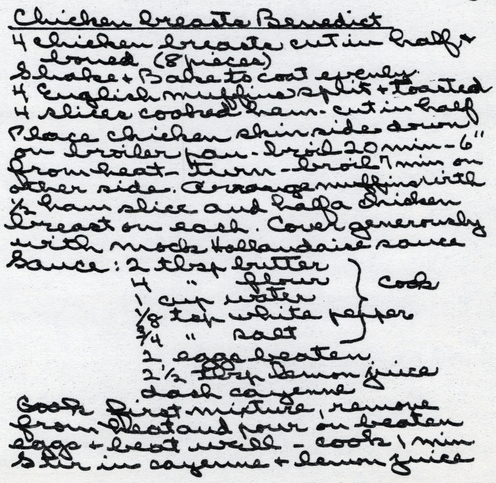 Chicken breasts Benedict
4 chicken breasts cut in half &
boned (8 pieces)
Shake & Bake to coat evenly.
4 English muffins split & toasted
4 slices cooked ham - cut in half
Place chicken skin side down
on broiler pan - broil 20 min - 6"
from heat - turn - broil 7 min on
other side. Arrange muffins with
1/2 ham slice and half a chicken
breast on each. Cover generously
with mock Hollandaise sauce
Sauce: 2 tbsp butter
4 " flour
1 cup water
1/8 tsp white pepper
3/4 " salt
} cook
2 eggs beaten
2 1/2 tbsp lemon juice
dash cayenne
Cook first mixture, remove
from heat and pour on beaten
eggs & beat well - cook 1 min
Stir in cayenne & lemon juice